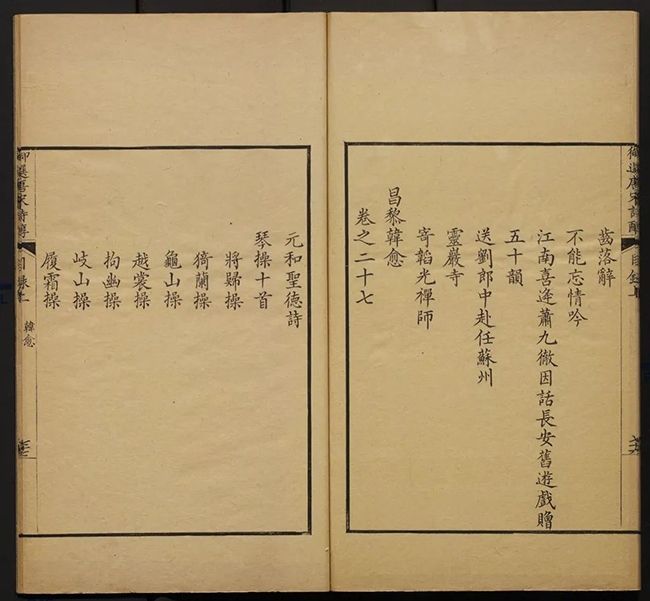 御選唐宋詩醇
目錄上
齒落辭
不能忘情吟
江南喜逢蕭九徹因話長安舊遊戲贈
五十韻
送劉郎中赴任蘇州
靈巖寺
寄韜光禪師
昌黎韓愈
卷之二十七
元和聖德詩
琴操十首
將歸操
猗蘭操
龜山操
越裳操
拘幽操
岐山操
履霜操
御選唐宋詩醇
目錄上
韓愈